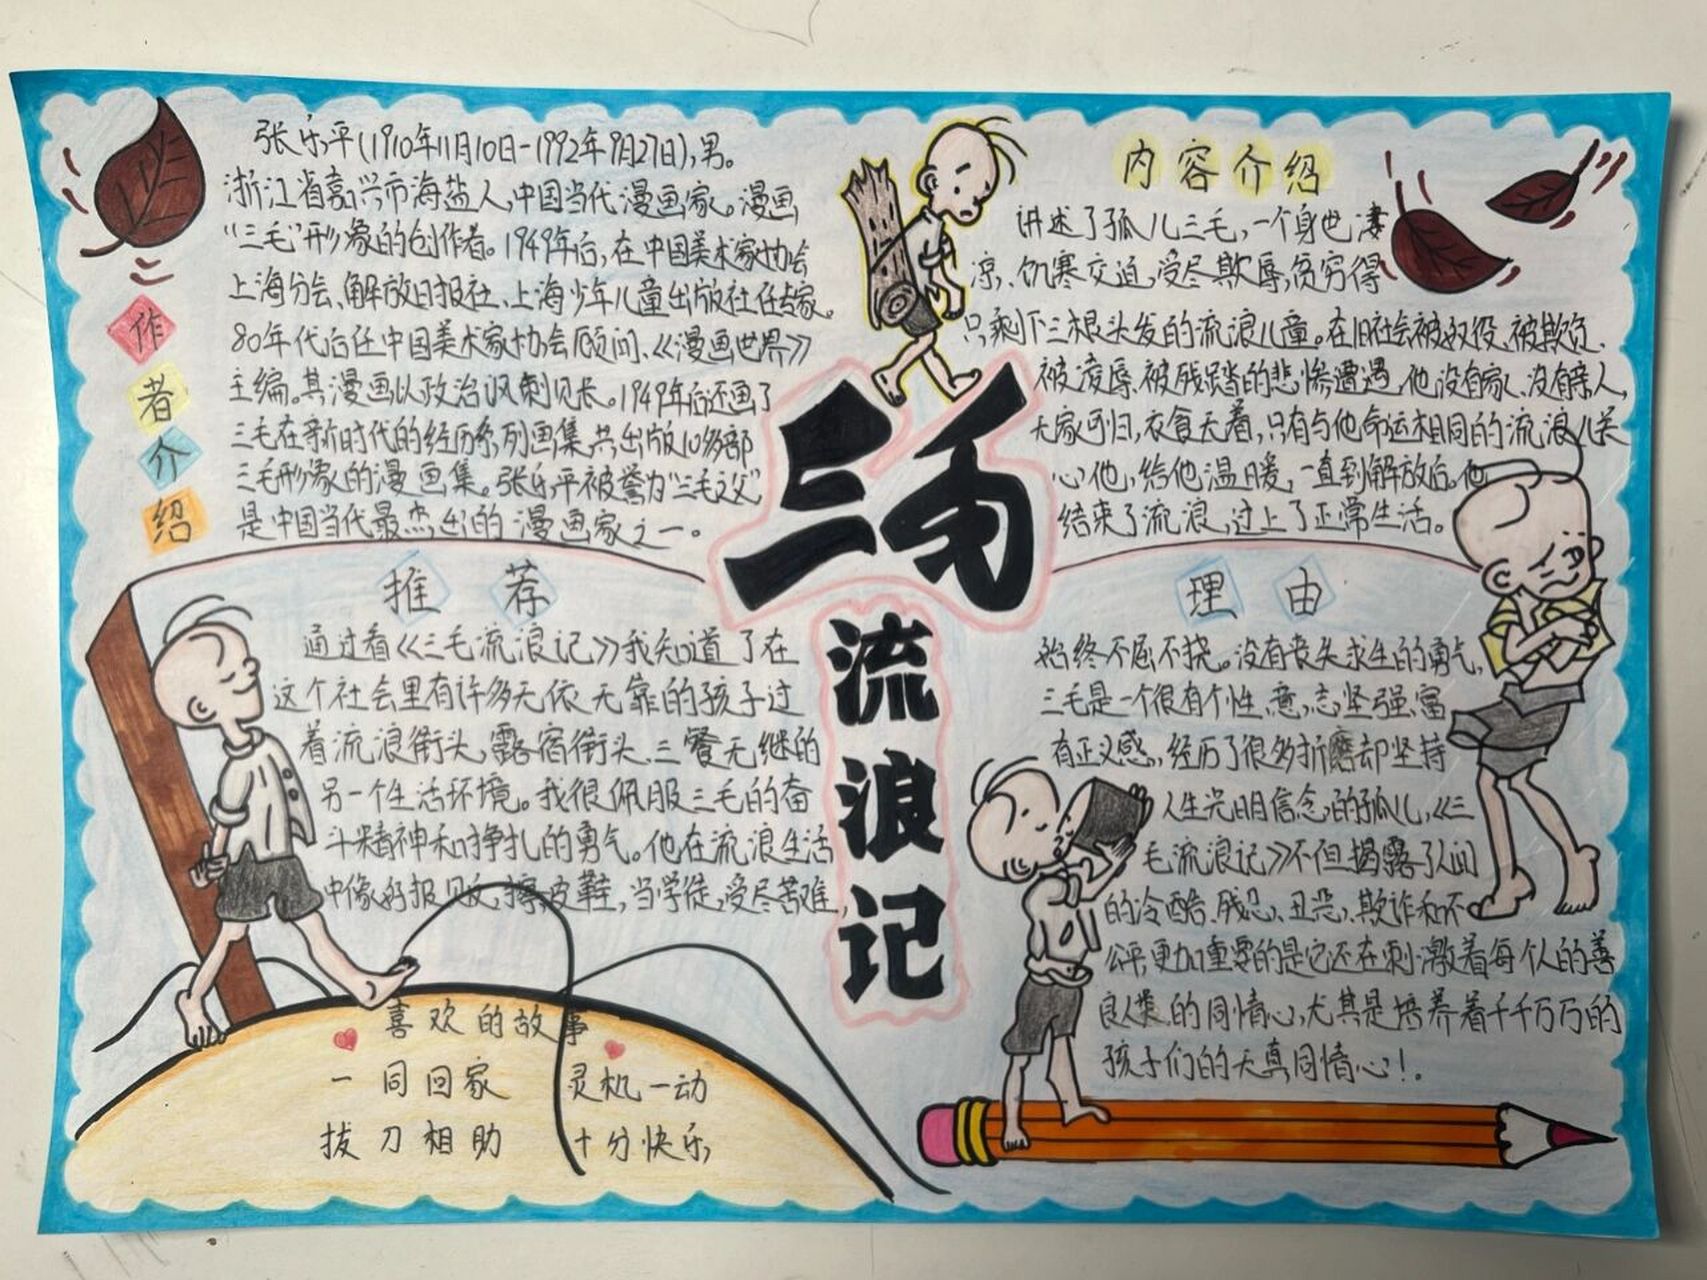 三毛
流浪记
作者介绍
张乐平(1910年11月10日-1992年9月27日),男。
浙江省嘉兴市海盐人,中国当代漫画家。漫画
“三毛”形象的创作者。1949年后,在中国美术家协会
上海分会、解放日报社、上海少年儿童出版社任专家。
80年代后任中国美术家协会顾问、《漫画世界》
主编。其漫画以政治讽刺见长。1949年后还画了
三毛在新时代的经历系列画集,共出版10多部
三毛形象的漫画集。张乐平被誉为“三毛之父”
是中国当代最杰出的漫画家之一。
内容介绍
讲述了孤儿三毛,一个身世凄
凉、饥寒交迫,受尽欺辱,贫穷得
只剩下三根头发的流浪儿童。在旧社会被奴役、被欺负、
被凌辱、被残踏的悲惨遭遇,他没有家、没有亲人,
无家可归,衣食无着,只有与他命运相同的流浪儿关
心他,给他温暖,一直到解放后。他
结束了流浪,过上了正常生活。
推荐
通过看《三毛流浪记》我知道了在
这个社会里有许多无依无靠的孩子过
着流浪街头,露宿街头、三餐无继的
另一个生活环境。我很佩服三毛的奋
斗精神和挣扎的勇气。他在流浪生活
中像好报贩,擦皮鞋,当学徒,受尽苦难,
理由
始终不屈不挠。没有丧失求生的勇气,
三毛是一个很有个性,意志坚强、富
有正义感,经历了很多折磨却坚持
人生光明信念的孤儿,《三
毛流浪记》不但揭露了人间
的冷酷、残忍、丑恶、欺诈和不
公平,更加重要的是它还在刺激着每个人的善
良人类的同情心,尤其是培养着千千万万的
孩子们的天真同情心!。
喜欢的故事
一同回家 灵机一动
拔刀相助 十分快乐